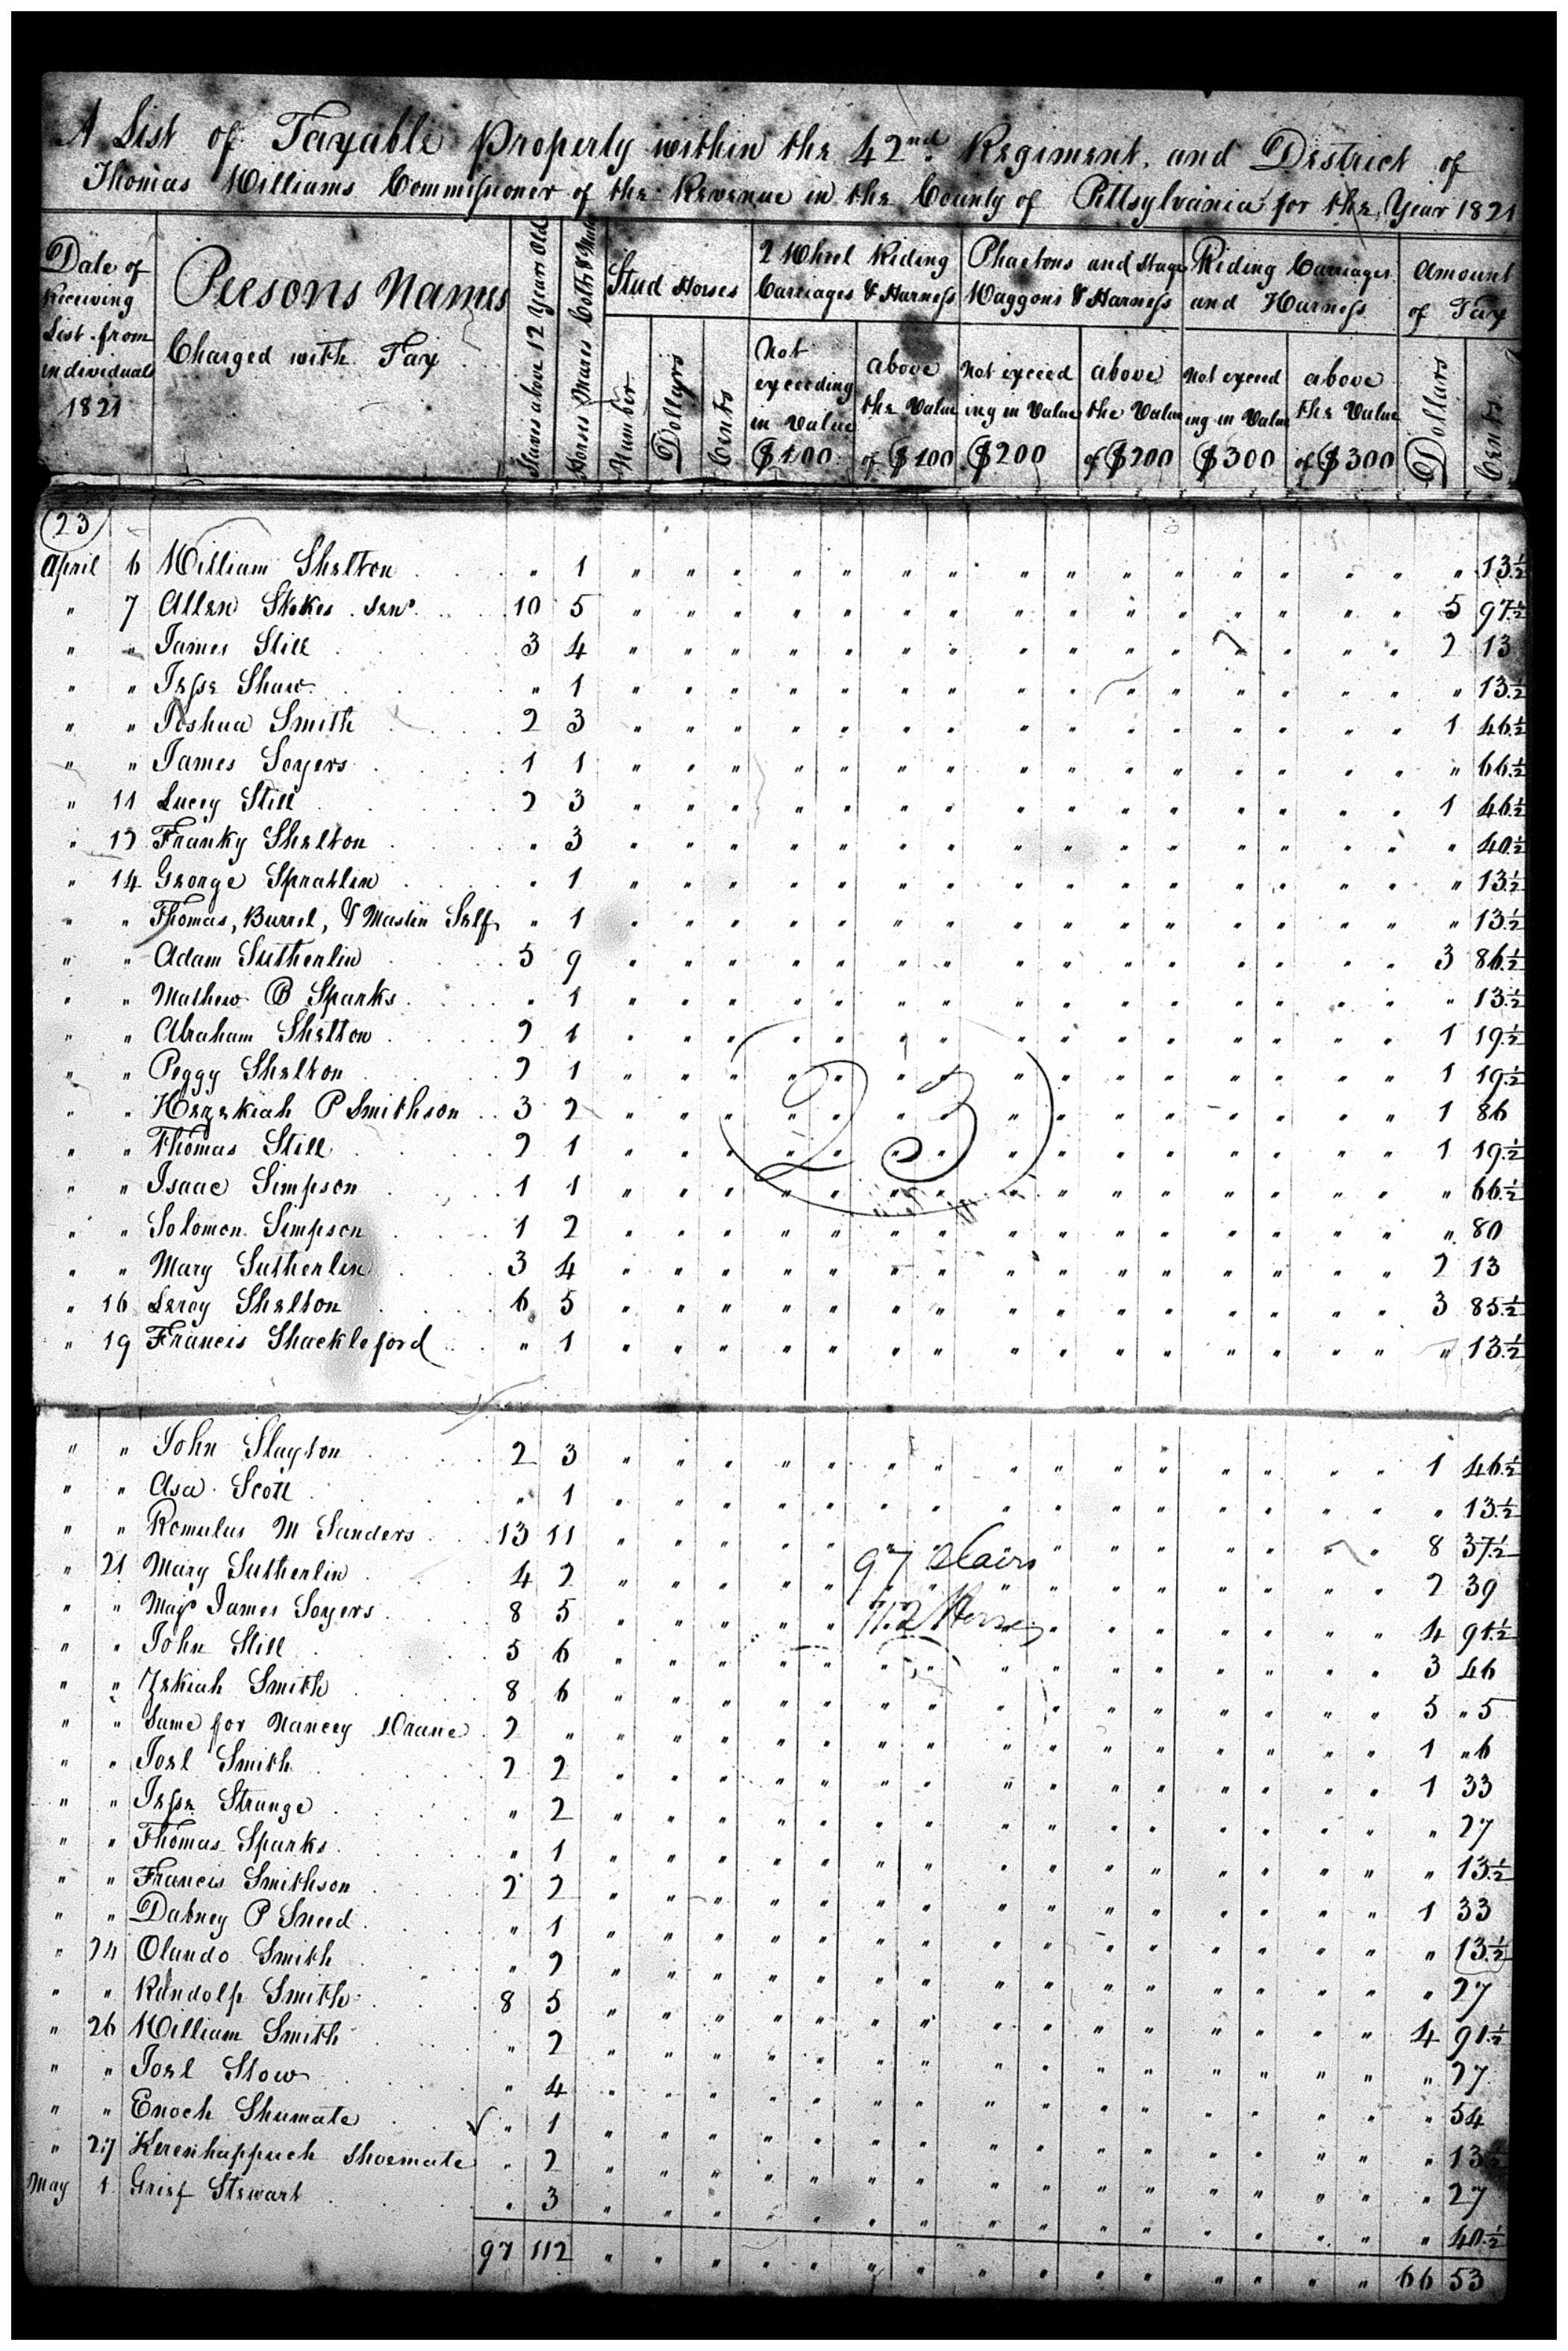 A List of Taxable Property within the 42nd Regiment, and District of
Thomas Williams Commissioner of the Revenue in the County of Pittsylvania for the Year 1821
Date of Receiving List from individuals 1821
Persons Names Charged with Tax
Slaves above 12 Years Old
Horses Mares Colts & Mules
Stud Horses
Number
Dollyrs
Cents
2 Wheel Riding Carriages & Harness
Not exceeding in Value $100
above the Value of $100
Phaetons and Stage Waggons & Harness
Not exceeding in Value $200
above the Value of $200
Riding Carriages and Harness
Not exceeding in Value $300
above the Value of $300
Amount of Tax
Dollars
Cents
23
April 6 William Shelton " 1 " 13½
" 7 Allen Stokes Senr 10 5 5 97½
" " James Still 3 4 2 13
" " Jesse Shaw " 1 " 13½
" " Joshua Smith 2 3 1 46½
" " James Soyers 1 1 " 66½
" 11 Lucey Still 2 3 1 46½
" 12 Franky Shelton " 3 " 40½
" 14 George Spratlin " 1 " 13½
" " Thomas, Burrel, & Mastin Self " 1 " 13½
" " Adam Sutherlin 5 9 3 86½
" " Mathew B Sparks " 1 " 13½
" " Abraham Shelton 2 1 1 19½
" " Peggy Shelton 2 1 1 19½
" " Hezekiah P Smithson 3 2 1 86
" " Thomas Still 2 1 1 19½
" " Isaac Simpson 1 1 " 66½
" " Solomon Simpson 1 2 " 80
" " Mary Sutherlin 3 4 2 13
" 16 Leroy Shelton 6 5 3 85½
" 19 Francis Shackleford " 1 " 13½
23
" " John Slayton 2 3 1 46½
" " Asa Scott " 1 " 13½
" " Romulus M Sanders 13 11 8 37½
" 21 Mary Sutherlin 4 2 2 39
" " Majr James Soyers 8 5 4 91½
" " John Still 5 6 3 46
" " Zekiah Smith 8 6 5 "5
" " Same for Nancey 2 " 1 "6
" " Joel Smith 2 2 1 33
" " Jesse Strange " 2 " 27
" " Thomas Sparks " 1 " 13½
" " Francis Smithson 2 2 1 33
" " Dabney P Sneed " 1 " 13½
" 24 Olando Smith " 2 " 27
" " Randolp Smith 8 5 4 91½
" 26 William Smith " 2 " 27
" " Joel Stow " 4 " 54
" " Enoch Shumate " 1 " 13½
" 27 Kerenhappuch Shoemate " 2 " 27
May 1 Grief Stewart " 3 " 40½
97 112 66 53
97
112 Horses